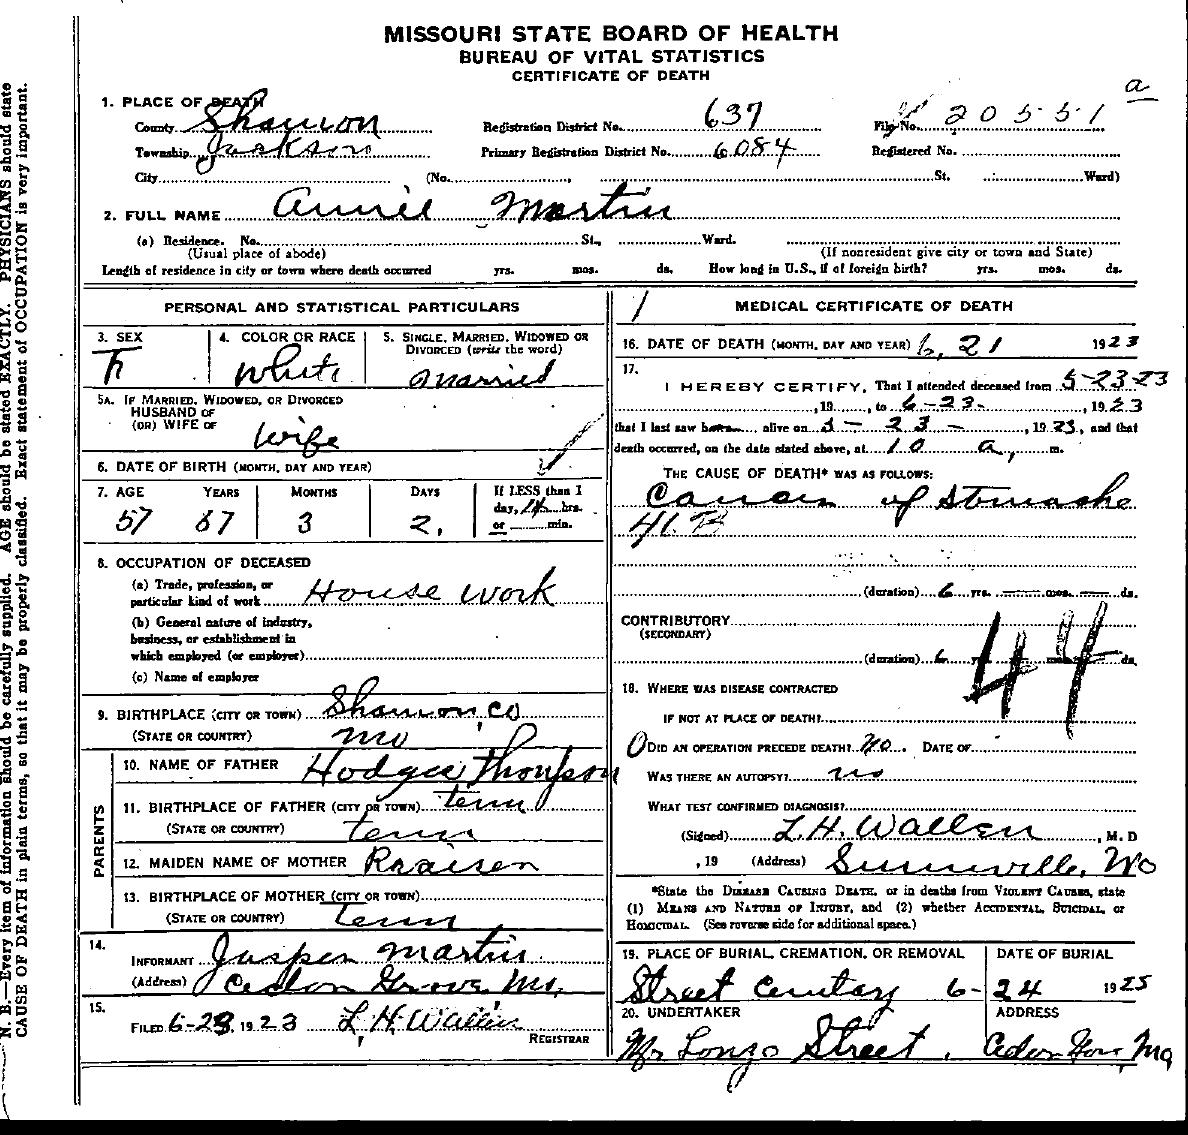 MISSOURI STATE BOARD OF HEALTH
BUREAU OF VITAL STATISTICS
CERTIFICATE OF DEATH
a
1. PLACE OF DEATH
County Shannon Registration District No. 637 File No. 20551
Township Jackson Primary Registration District No. 6084 Registered No.
City (No. , St. Ward)
2. FULL NAME Annie Martin
(a) Residence. No. St., Ward.
(Usual place of abode) (If nonresident give city or town and State)
Length of residence in city or town where death occurred yrs. mos. ds. How long in U.S., if of foreign birth? yrs. mos. ds.
PERSONAL AND STATISTICAL PARTICULARS
3. SEX 4. COLOR OR RACE 5. SINGLE, MARRIED, WIDOWED OR DIVORCED (write the word)
F White Married
5A. IF MARRIED, WIDOWED, OR DIVORCED
HUSBAND OF
(OR) WIFE OF Wife
6. DATE OF BIRTH (MONTH, DAY AND YEAR)
7. AGE YEARS MONTHS DAYS If LESS than 1
day, hrs.
57 67 3 2. or min.
8. OCCUPATION OF DECEASED
(a) Trade, profession, or
particular kind of work House work
(b) General nature of industry,
business, or establishment in
which employed (or employer)
(c) Name of employer
9. BIRTHPLACE (CITY OR TOWN) Shannon, co
(STATE OR COUNTRY) Mo
PARENTS
10. NAME OF FATHER Hodges Thompson
11. BIRTHPLACE OF FATHER (CITY OR TOWN) tenn
(STATE OR COUNTRY) tenn
12. MAIDEN NAME OF MOTHER
13. BIRTHPLACE OF MOTHER (CITY OR TOWN)
(STATE OR COUNTRY) tenn
14.
INFORMANT Jasper Martin
(Address) Cedar Grove Mo,
15.
FILED 6-28, 1923 L, H. Wallen
REGISTRAR
MEDICAL CERTIFICATE OF DEATH
16. DATE OF DEATH (MONTH, DAY AND YEAR) 6, 21 1923
17.
I HEREBY CERTIFY, That I attended deceased from 5-23-23
, 19 , to 6-23- , 1923
that I last saw h alive on 5-23- , 1923, and that
death occurred, on the date stated above, at 10 a, m.
THE CAUSE OF DEATH* WAS AS FOLLOWS:
Cancer of Stomache
41.B
(duration) 6 yrs. mos. ds.
CONTRIBUTORY
(SECONDARY)
(duration) 6 yrs. mos. ds.
44
18. WHERE WAS DISEASE CONTRACTED
IF NOT AT PLACE OF DEATH?
DID AN OPERATION PRECEDE DEATH? No. DATE OF
WAS THERE AN AUTOPSY? no
WHAT TEST CONFIRMED DIAGNOSIS?
(Signed) L. H. Wallen , M. D
, 19 (Address) Summerville, Mo
*State the DISEASE CAUSING DEATH, or in deaths from VIOLENT CAUSES, state
(1) MEANS AND NATURE OF INJURY, and (2) whether ACCIDENTAL, SUICIDAL, or
HOMICIDAL. (See reverse side for additional space.)
19. PLACE OF BURIAL, CREMATION, OR REMOVAL DATE OF BURIAL
Street Cemetary 6-24 1925
20. UNDERTAKER ADDRESS
Mr Lonzo Street, Cedar Grove, Mo,
N. B.—Every item of information should be carefully supplied. AGE should be stated EXACTLY. PHYSICIANS should state
CAUSE OF DEATH in plain terms, so that it may be properly classified. Exact statement of OCCUPATION is very important.